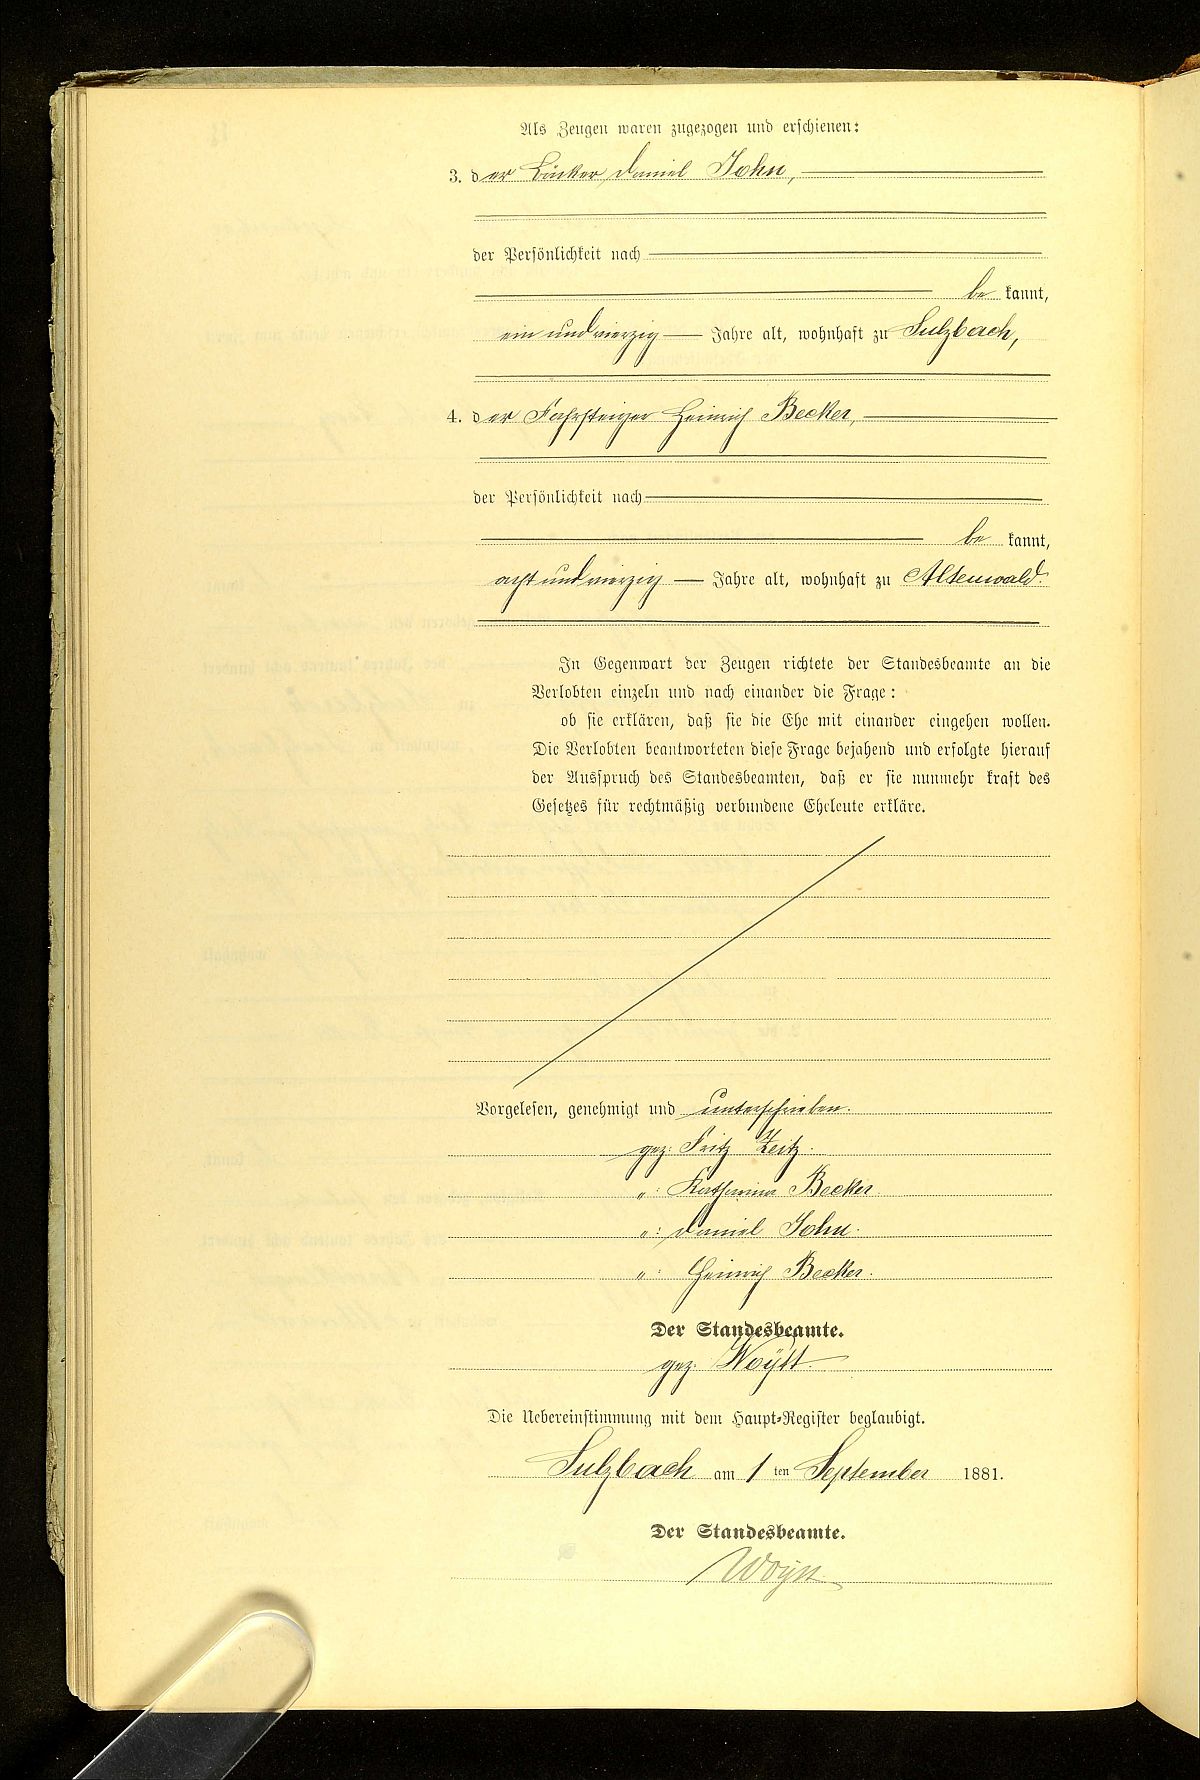 Als Zeugen waren zugezogen und erschienen:
3. der Bäcker Daniel John,
der Persönlichkeit nach
be kannt,
ein und vierzig Jahre alt, wohnhaft zu Sulzbach,
4. der Fahrsteiger Heinrich Becker,
der Persönlichkeit nach
be kannt,
acht und vierzig Jahre alt, wohnhaft zu Altenwald.
In Gegenwart der Zeugen richtete der Standesbeamte an die
Verlobten einzeln und nach einander die Frage:
ob sie erklären, daß sie die Ehe mit einander eingehen wollen.
Die Verlobten beantworteten diese Frage bejahend und erfolgte hierauf
der Ausspruch des Standesbeamten, daß er sie nunmehr kraft des
Gesetzes für rechtmäßig verbundene Eheleute erkläre.
Vorgelesen, genehmigt und unterschrieben.
gez: Fritz Zeitz.
": Katharina Becker.
": Daniel John.
": Heinrich Becker.
Der Standesbeamte.
gez. Woÿtt
Die Uebereinstimmung mit dem Haupt-Register beglaubigt.
Sulzbach am 1 ten September 1881.
Der Standesbeamte.
Woÿtt